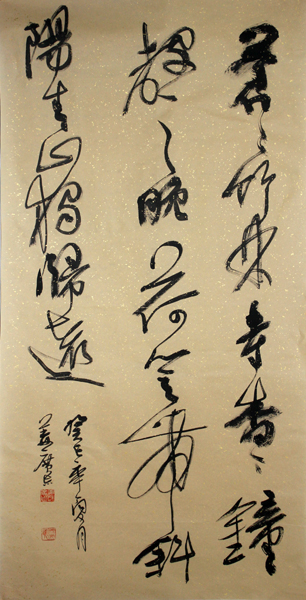 蒼々竹林寺杳々鐘
聲晚荷笠帶斜
陽青山獨歸遠
癸巳年夏月